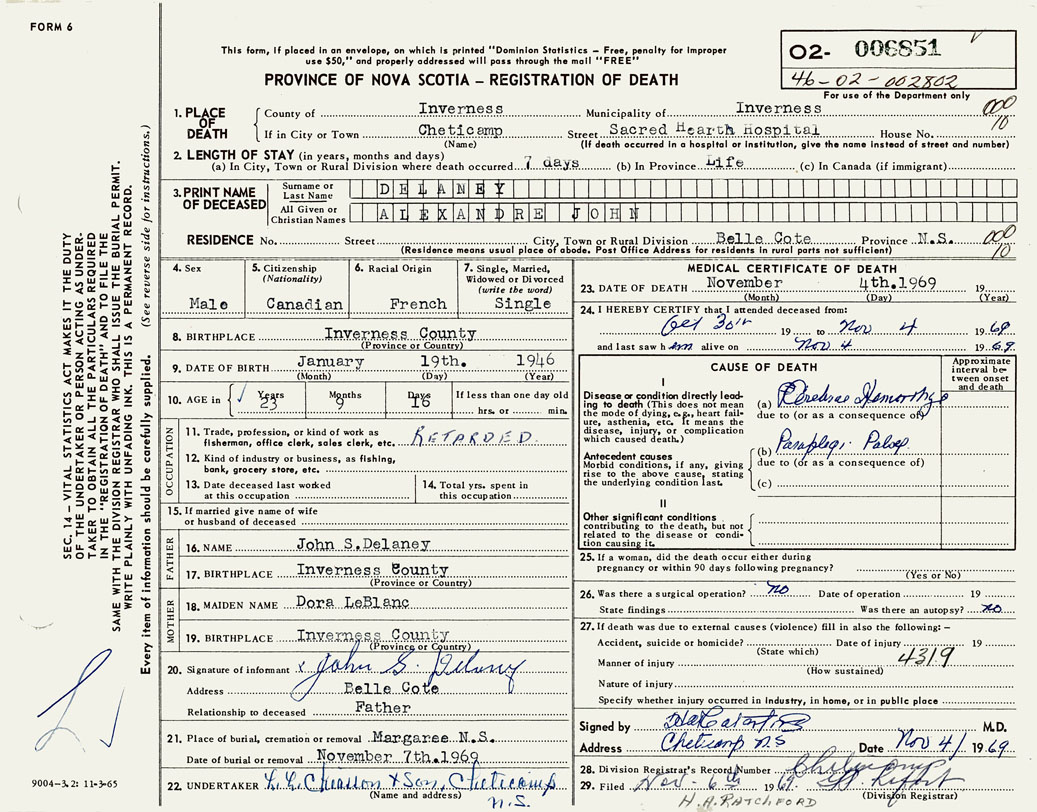 FORM 6
This form, if placed in an envelope, on which is printed "Dominion Statistics – Free, penalty for improper
use $50," and properly addressed will pass through the mail "FREE"
PROVINCE OF NOVA SCOTIA – REGISTRATION OF DEATH
02- 006851
46-02-002802
For use of the Department only
SEC. 14 – VITAL STATISTICS ACT MAKES IT THE DUTY
OF THE UNDERTAKER OR PERSON ACTING AS UNDER-
TAKER TO OBTAIN ALL THE PARTICULARS REQUIRED
IN THE "REGISTRATION OF DEATH" AND TO FILE THE
SAME WITH THE DIVISION REGISTRAR WHO SHALL ISSUE THE BURIAL PERMIT.
WRITE PLAINLY WITH UNFADING INK. THIS IS A PERMANENT RECORD.
Every item of information should be carefully supplied. (See reverse side for instructions.)
1. PLACE OF DEATH
County of Inverness Municipality of Inverness 000
If in City or Town Cheticamp Street Sacred Hearth Hospital House No. 10
(Name) (If death occurred in a hospital or institution, give the name instead of street and number)
2. LENGTH OF STAY (in years, months and days)
(a) In City, Town or Rural Division where death occurred 7 days (b) In Province Life (c) In Canada (if immigrant)
3. PRINT NAME OF DECEASED
Surname or Last Name DELANEY
All Given or Christian Names ALEXANDRE JOHN
RESIDENCE No. Street City, Town or Rural Division Belle Cote Province N.S. 000
(Residence means usual place of abode. Post Office Address for residents in rural parts not sufficient) 10
4. Sex Male
5. Citizenship (Nationality) Canadian
6. Racial Origin French
7. Single, Married, Widowed or Divorced (write the word) Single
8. BIRTHPLACE Inverness County
(Province or Country)
9. DATE OF BIRTH January 19th. 1946
(Month) (Day) (Year)
10. AGE in Years 23 Months 9 Days 16 If less than one day old
hrs. or min.
OCCUPATION
11. Trade, profession or kind of work as
fisherman, office clerk, sales clerk, etc. RETARDED
12. Kind of industry or business, as fishing,
bank, grocery store, etc.
13. Date deceased last worked
at this occupation
14. Total yrs. spent in
this occupation
15. If married give name of wife
or husband of deceased
FATHER
16. NAME John S.Delaney
17. BIRTHPLACE Inverness County
(Province or Country)
MOTHER
18. MAIDEN NAME Dora LeBlanc
19. BIRTHPLACE Inverness County
(Province or Country)
20. Signature of informant x John S. Delaney
Address Belle Cote
Relationship to deceased Father
21. Place of burial, cremation or removal Margaree N.S.
Date of burial or removal November 7th.1969
22. UNDERTAKER L. L. Chiasson & Son, Cheticamp
(Name and address) N.S.
MEDICAL CERTIFICATE OF DEATH
23. DATE OF DEATH November 4th.1969 19
(Month) (Day) (Year)
24. I HEREBY CERTIFY that I attended deceased from:
Oct 30th 19 to Nov 4 1969
and last saw him alive on Nov 4 1969.
CAUSE OF DEATH
Approximate interval between onset and death
I
Disease or condition directly lead-
ing to death (This does not mean
the mode of dying, e.g., heart fail-
ure, asthenia, etc. It means the
disease, injury, or complication
which caused death.)
(a) Cerebral Hemorrhage
due to (or as a consequence of)
Antecedent causes
Morbid conditions, if any, giving
rise to the above cause, stating
the underlying condition last.
(b)
due to (or as a consequence of)
(c)
II
Other significant conditions
contributing to the death, but not
related to the disease or condi-
tion causing it.
25. If a woman, did the death occur either during
pregnancy or within 90 days following pregnancy?
(Yes or No)
26. Was there a surgical operation? No Date of operation 19
State findings Was there an autopsy? No
27. If death was due to external causes (violence) fill in also the following: –
Accident, suicide or homicide? Date of injury 19
(State which) 4319
Manner of injury
(How sustained)
Nature of injury
Specify whether injury occurred in industry, in home, or in public place
Signed by M.D.
Address Cheticamp NS Date Nov 4/ 1969
28. Division Registrar's Record Number
29. Filed Nov. 6th 1969.
(Division Registrar)
H.A. RATCHFORD
9004–3.2: 11-3-65